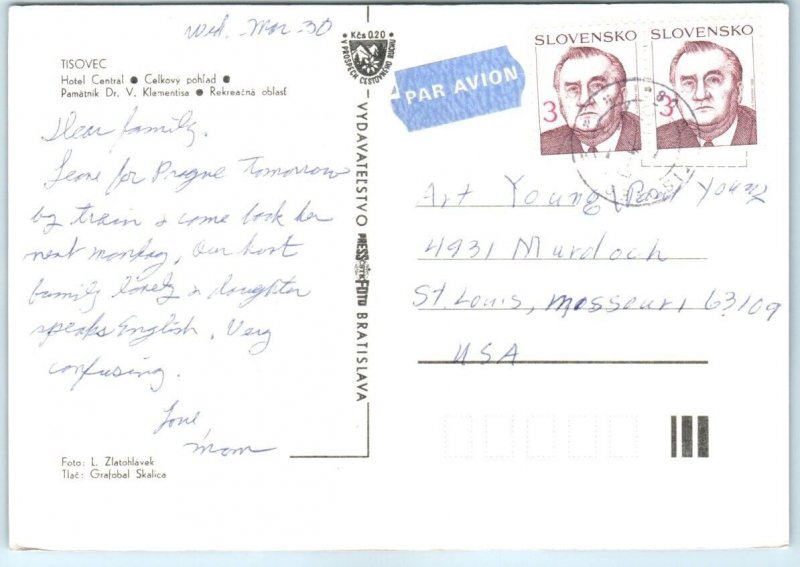 Wed. Mar 30
TISOVEC
Hotel Centrál ● Celkový pohľad ●
Pamätník Dr. V. Klementisa ● Rekreačná oblasť
Dear family,
Leave for Prague tomorrow
by train & come back here
next monday, Our host
family lovely & daughter
speaks English. Very
confusing.
Love,
Mom
Foto: L. Zlatohlávek
Tlač: Grafobal Skalica
Kčs 0.20
V PROSPECH CESTOVNÉHO RUCHU
VYDAVATEĽSTVO PRESSFOTO BRATISLAVA
PAR AVION
SLOVENSKO
3
SLOVENSKO
3
Art Young / Paul Young
4931 Murdoch
St. Louis, Missouri 63109
USA